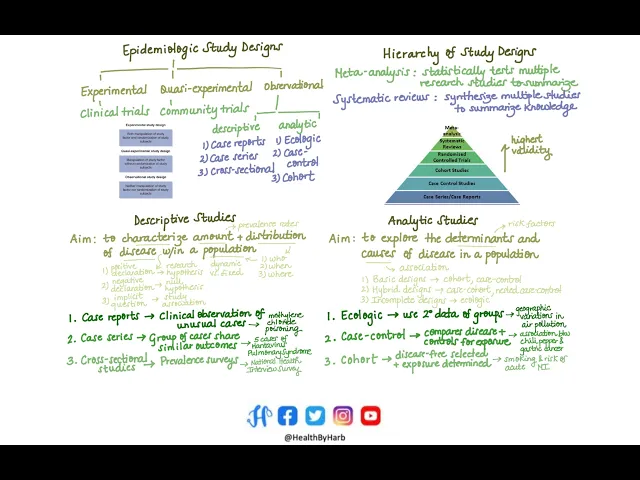 Epidemiologic Study Designs
Experimental Quasi-experimental Observational
Clinical trials Community trials
descriptive analytic
1) Case reports
2) Case series
3) Cross-sectional
1) Ecologic
2) Case-control
3) Cohort
Experimental study design
Quasi-experimental study design
Observational study design
Hierarchy of Study Designs
Meta-analysis : statistically tests multiple
research studies to summarize
Systematic reviews : synthesize multiple studies
to summarize knowledge
Meta-analysis
Systematic
Reviews
Randomized
Controlled Trials
Cohort Studies
Case Control Studies
Case Series/Case Reports
highest
validity
Descriptive Studies
prevalence rates
Aim: to characterize amount + distribution
of disease w/in a population
1) positive declaration → research hypothesis
2) negative declaration → null hypothesis
3) implicit question → study association
dynamic vs. fixed
1) who
2) when
3) where
1. Case reports → Clinical observation of
unusual cases → methylene
chloride
poisoning
2. Case series → Group of cases share
similar outcomes → 5 cases of
Hantavirus
Pulmonary Syndrome
3. Cross-sectional
studies → Prevalence surveys → National Health
Interview Survey
Analytic Studies
risk factors
Aim: to explore the determinants and
causes of disease in a population
association
1) Basic designs → cohort, case-control
2) Hybrid designs → case-cohort, nested case-control
3) Incomplete designs → ecologic
1. Ecologic → use 2° data of groups → geographic
variations in
air pollution
2. Case-control → compares disease +
controls for exposure → association b/w
chili pepper &
gastric cancer
3. Cohort → disease-free selected
+ exposure determined → smoking & risk of
acute MI.
@HealthByHarb